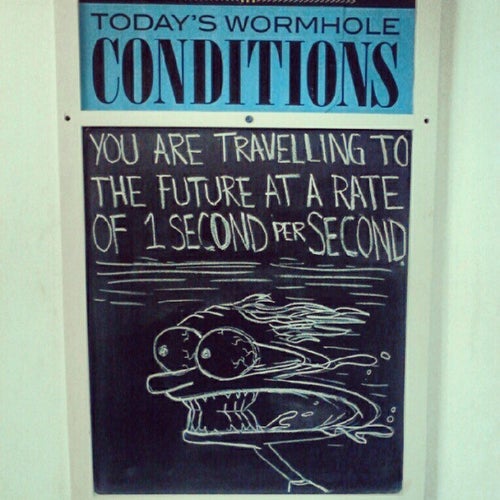 TODAY'S WORMHOLE
CONDITIONS
YOU ARE TRAVELLING TO
THE FUTURE AT A RATE
OF 1 SECOND PER SECOND